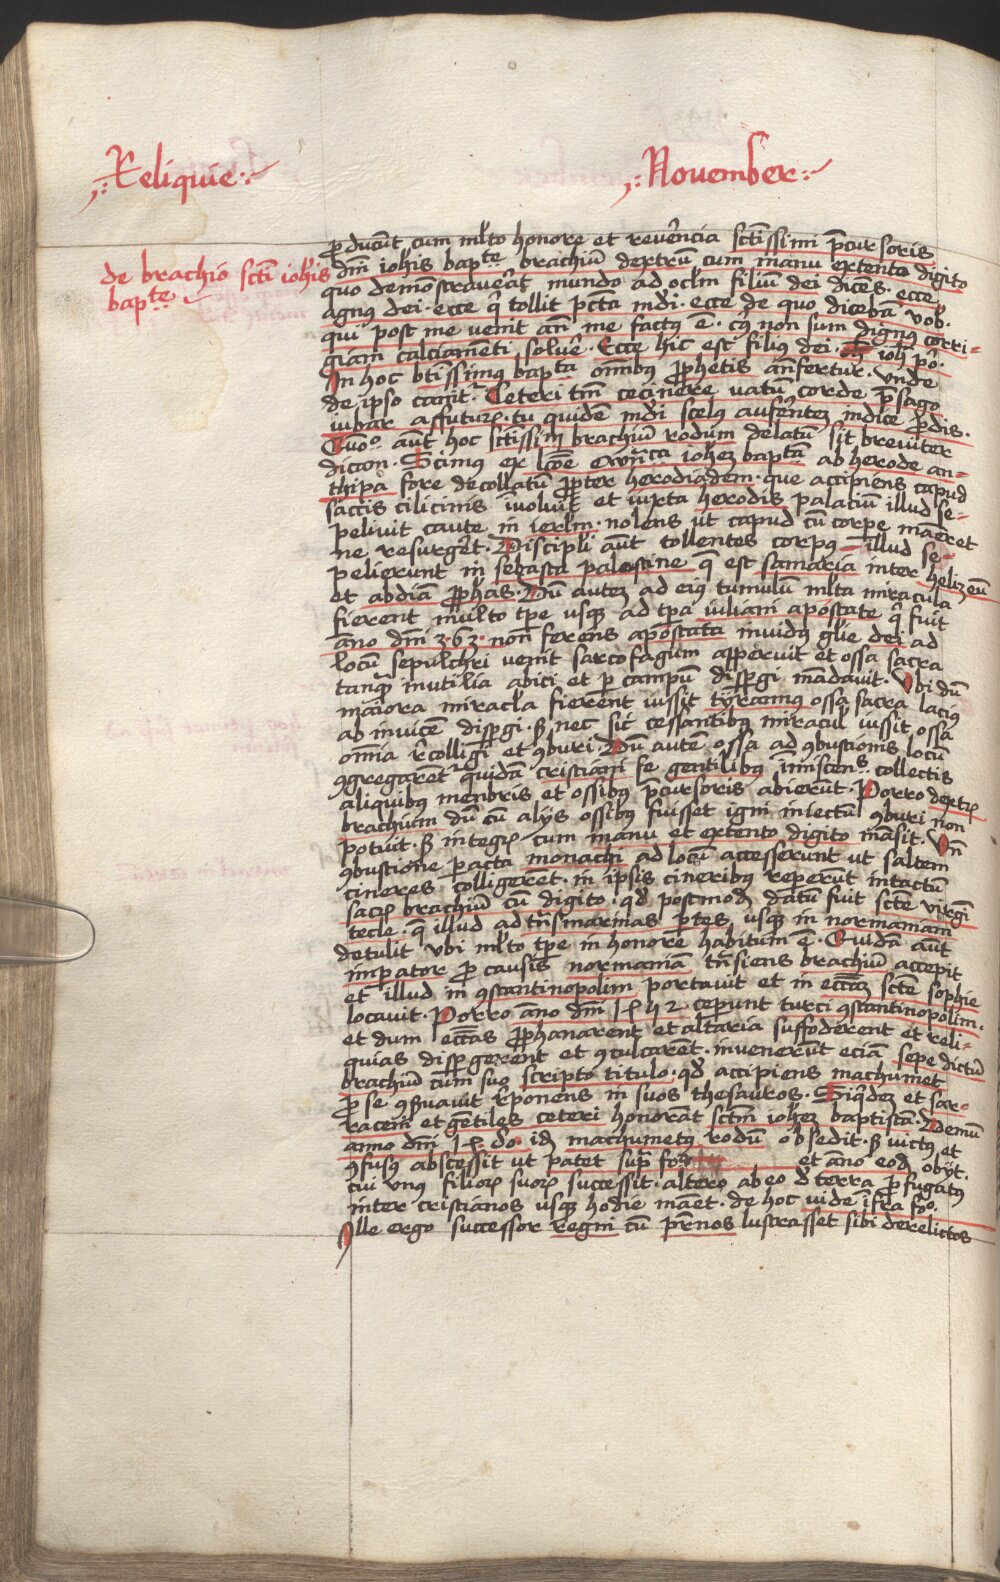 Reliquie
November
de brachio scti ioh̄is
bapte
ꝓducūt cum mlto honore et reverēncia sctissimi p̄cursoris
dm̄ ioh̄is bapte brachiū dextrū cum manu extento digito
quo demōstraverāt mundo ad oclm filiū dei dices. ecce
agnus dei. ecce q̄ tollit pctā mdi. ecce de quo dicebā vob.
qui post me venit an̄ me factꝰ ē. cuꝰ non sum dignꝰ corri-
giam calciamenti solvē. Ecce hic est filiꝰ dei. ioh pº.
In hoc btissimꝰ bapta omibꝰ ꝓphetis anfertur. vnde
de ipso canit. Ceteri tm̄ cecinere vatū corde p̄sago
iubar affuturꝝ. tu quidē mdi scelꝰ auferentez indice ꝓdis.
Quº aūt hoc sctissim brachiū rodum delatū sit breviter
dicam. Scimꝰ ex lcōe ewāīca ioh̄ez baptā ab herode an-
thipa fore decollatū ꝓpter herodiadem. que accipiens capud
saccis cilicinis īvoluit et iuxta herodis palaciū illud se-
pelivit caute in ierlm. nolens ut capud cū corpe maneret
ne resurgēt. Discipli aūt tollentes corpꝰ illud se-
pelierunt in sebasta palestine q̄ est samaria inter helizeū
et abdiā ꝓphas. Dū autez ad eiꝰ tumulū mlta miracula
fierent multo tpe usqꝫ ad tpa iuliani apostate q̄ fuit
anno dm̄ 363. non ferens apostata invidꝰ glie dei ad
locū sepulchri venit sarcofagum apperuit et ossa sacra
tanqꝫ inutilia abici et p campū disꝑgi mādavit. Vbi dū
maiora miracla fierent iussit tyrannꝰ ossa sacra laciꝰ
ab invicē disꝑgi. sꝫ nec sic cessantibꝰ miracul iussit ossa
omīa rcolligi et ꝯburi. Dū autē ossa ad ꝯbustionis locū
ꝯgregarēt quidā cristiani se gentilibꝰ īmiscens. collectis
aliquibꝰ menbris et ossibꝰ p̄cursoris abierūt. Porro dextrꝝ
brachium dū cū alijs ossibꝰ fuisset igni iniectū ꝯburi non
potuit. sꝫ integrꝝ cum manu et extento digito māsit. Vn̄
ꝯbustione ꝑacta monachi ad locū accesserunt ut saltem
cineres colligerēt. in ipsis cineribꝰ reperūt intactū
sacꝝ brachiū cū digito. qd postmodꝫ datū fuit scte virgī
tecle. q̄ illud ad tn̄smarinas ꝑtes usqꝫ in normaniam
detulit vbi mlto tpe in honore habitum ē. Quidā aūt
imꝑator ꝓ causis normaniā tn̄siens brachiū accepit
et illud in ꝯstantinopolim portavit et in eccaz scte sophie
locavit. Porro anno dm̄ ceperunt turci ꝯstantinopolim.
et dum eccas ꝓphanarent et altaria suffoderent et reli-
quias disꝑgerent et ꝯculcarēt. invenerūt eciā sepe dictū
brachiū cum suo scripto titulo. qd accipiens machumet
ꝓ se ꝯservavit rponens in suos thesauros. Siqdez et sar-
raceni et gentiles ceteri honorāt sctm ioh̄ez baptistā. Demū
anno dm̄ idꝫ machumetꝰ rodū obsedit. sꝫ victꝰ et
ꝯfusꝰ abscessit ut patet supra et anno eodꝫ obijt.
cui vnꝰ filiorꝝ suorꝝ successit. altero ab eo d terra ꝓfugatꝰ
inter cristianos usqꝫ hodie manet. de hoc vide īfra foº.
Ille ergo successor regni cū prnos lustrasset sibi derelictos